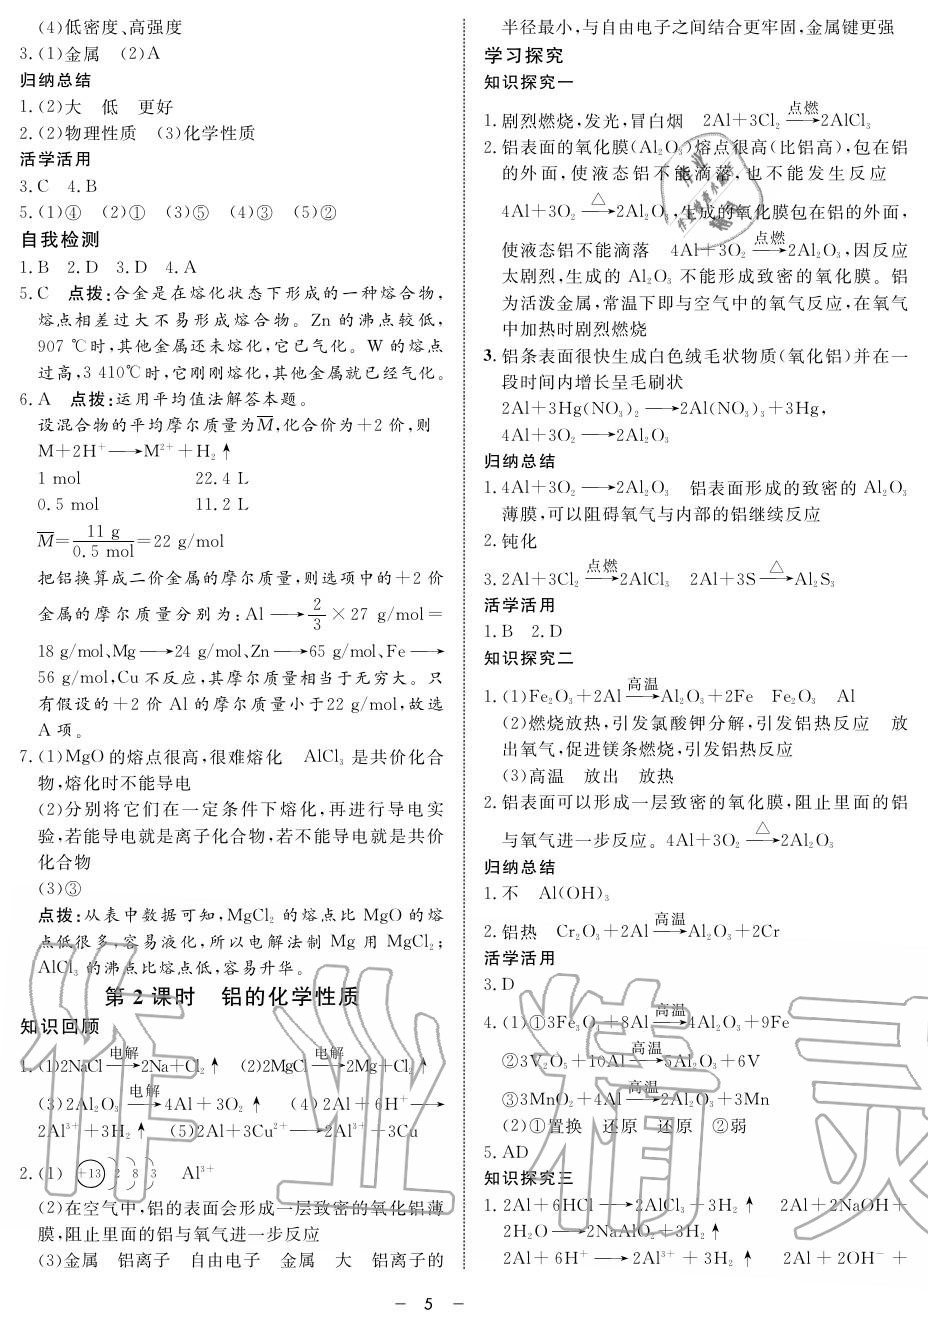 (4)低密度、高强度
3.(1)金属 (2)A
归纳总结
1.(2)大 低 更好
2.(2)物理性质 (3)化学性质
活学活用
3.C 4.B
5.(1)④ (2)① (3)⑤ (4)③ (5)②
自我检测
1.B 2.D 3.D 4.A
5.C 点拨:合金是在熔化状态下形成的一种熔合物,
熔点相差过大不易形成熔合物。Zn 的沸点较低,
907 ℃时,其他金属还未熔化,它已气化。W 的熔点
过高,3 410℃时,它刚刚熔化,其他金属就已经气化。
6.A 点拨:运用平均值法解答本题。
设混合物的平均摩尔质量为M̅,化合价为+2 价,则
M+2H⁺⟶M²⁺+H₂↑
1 mol 22.4 L
0.5 mol 11.2 L
M̅=11 g/0.5 mol=22 g/mol
把铝换算成二价金属的摩尔质量,则选项中的+2 价
金属的摩尔质量分别为:Al⟶2/3×27 g/mol=
18 g/mol、Mg⟶24 g/mol、Zn⟶65 g/mol、Fe⟶
56 g/mol,Cu不反应,其摩尔质量相当于无穷大。只
有假设的+2 价 Al 的摩尔质量小于22 g/mol,故选
A 项。
7.(1)MgO的熔点很高,很难熔化 AlCl₃ 是共价化合
物,熔化时不能导电
(2)分别将它们在一定条件下熔化,再进行导电实
验,若能导电就是离子化合物,若不能导电就是共价
化合物
(3)③
点拨:从表中数据可知,MgCl₂ 的熔点比 MgO 的熔
点低很多,容易液化,所以电解法制 Mg 用 MgCl₂;
AlCl₃ 的沸点比熔点低,容易升华。
第 2 课时 铝的化学性质
知识回顾
1.(1)2NaCl 电解⟶2Na+Cl₂↑ (2)2MgCl 电解⟶2Mg+Cl₂↑
(3)2Al₂O₃ 电解⟶4Al+3O₂↑ (4)2Al+6H⁺⟶
2Al³⁺+3H₂↑ (5)2Al+3Cu²⁺⟶2Al³⁺+3Cu
2.(1) +13 2 8 3 Al³⁺
(2)在空气中,铝的表面会形成一层致密的氧化铝薄
膜,阻止里面的铝与氧气进一步反应
(3)金属 铝离子 自由电子 金属 大 铝离子的
半径最小,与自由电子之间结合更牢固,金属键更强
学习探究
知识探究一
1.剧烈燃烧,发光,冒白烟 2Al+3Cl₂ 点燃⟶2AlCl₃
2.铝表面的氧化膜(Al₂O₃)熔点很高(比铝高),包在铝
的外面,使液态铝不能滴落,也不能发生反应
4Al+3O₂ △⟶2Al₂O₃,生成的氧化膜包在铝的外面,
使液态铝不能滴落 4Al+3O₂ 点燃⟶2Al₂O₃,因反应
太剧烈,生成的 Al₂O₃ 不能形成致密的氧化膜。铝
为活泼金属,常温下即与空气中的氧气反应,在氧气
中加热时剧烈燃烧
3.铝条表面很快生成白色绒毛状物质(氧化铝)并在一
段时间内增长呈毛刷状
2Al+3Hg(NO₃)₂⟶2Al(NO₃)₃+3Hg,
4Al+3O₂⟶2Al₂O₃
归纳总结
1.4Al+3O₂⟶2Al₂O₃ 铝表面形成的致密的 Al₂O₃
薄膜,可以阻碍氧气与内部的铝继续反应
2.钝化
3.2Al+3Cl₂ 点燃⟶2AlCl₃ 2Al+3S △⟶Al₂S₃
活学活用
1.B 2.D
知识探究二
1.(1)Fe₂O₃+2Al 高温⟶Al₂O₃+2Fe Fe₂O₃ Al
(2)燃烧放热,引发氯酸钾分解,引发铝热反应 放
出氧气,促进镁条燃烧,引发铝热反应
(3)高温 放出 放热
2.铝表面可以形成一层致密的氧化膜,阻止里面的铝
与氧气进一步反应。4Al+3O₂ △⟶2Al₂O₃
归纳总结
1.不 Al(OH)₃
2.铝热 Cr₂O₃+2Al 高温⟶Al₂O₃+2Cr
活学活用
3.D
4.(1)①3Fe₃O₄+8Al 高温⟶4Al₂O₃+9Fe
②3V₂O₅+10Al 高温⟶5Al₂O₃+6V
③3MnO₂+4Al 高温⟶2Al₂O₃+3Mn
(2)①置换 还原 还原 ②弱
5.AD
知识探究三
1. 2Al+6HCl⟶2AlCl₃+3H₂↑ 2Al+2NaOH+
2H₂O⟶2NaAlO₂+3H₂↑
2Al+6H⁺⟶2Al³⁺+3H₂↑ 2Al+2OH⁻+
— 5 —
作业精灵